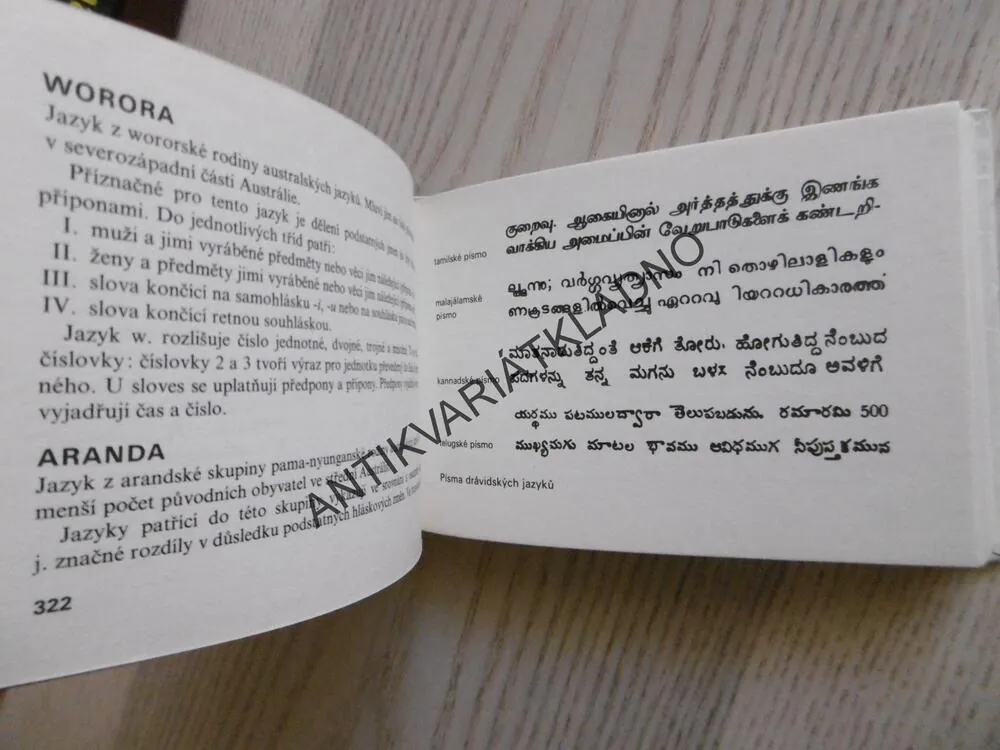 WORORA
Jazyk z wororské rodiny australských jazyků. Mluví jím
v severozápadní části Austrálie.
Příznačné pro tento jazyk je dělení podstatných jmen do
příponami. Do jednotlivých tříd patří:
I. muži a jimi vyráběné předměty nebo věci jim náležející
II. ženy a předměty jimi vyráběné nebo věci jim náležející
III. slova končící na samohlásku -i, -u nebo na souhlásku
IV. slova končící retnou souhláskou.
Jazyk w. rozlišuje číslo jednotné, dvojné, trojné a množné.
číslovky: číslovky 2 a 3 tvoří výraz pro jednotku
ného. U sloves se uplatňují předpony a přípony. Předpony
vyjadřují čas a číslo.
ARANDA
Jazyk z arandské skupiny pama-nyunganské
menší počet původních obyvatel ve střední Austrálii
Jazyky patřící do této skupiny vykazují ve srovnání s
j. značné rozdíly v důsledku podstatných hláskových změn.
322
tamilské písmo
குறைவு. ஆகையினால் அர்த்தத்துக்கு இணங்க
வாக்கிய அமைப்பின் வேறுபாடுகளைக் கண்டறி-
malajálamské
písmo
ല്ലൂന്നു; വർഗ്ഗവ്യത്യാസം നി തൊഴിലാളികളും
ഏററവു ിയററധികാരത്ത്
kannadské písmo
ಮಾತನಾಡುತಿದ್ದಂತೆ ಆಕೆಗೆ ತೋರು. ಹೋಗುತಿದ್ದನೆಂಬುದ
ಪದಗಳನ್ನು ತನ್ನ ಮಗನು ನೆಂಬುದೂ ಅವಳಿಗೆ
telugské písmo
యర్థము పటములద్వారా తెలుపబడును. రమారమి 500
ముఖ్యమగు మాటల భావము ఆవిధముగ నీపుస్తకమువ
Písma drávidských jazyků
ANTIKVARIÁTKLADNO